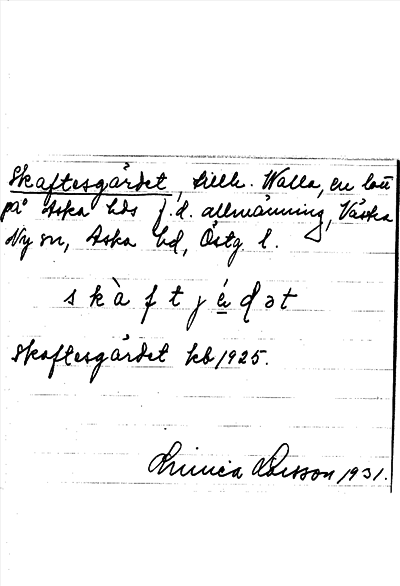 Skaftesgärdet, tillh. Walla, en lott
på Aska hds f.d. allmänning, Västra
Ny sn, Aska hd, Östg l.
skàftjédət
Skaftesgärdet kb 1925.
Linnéa Larsson 1931.